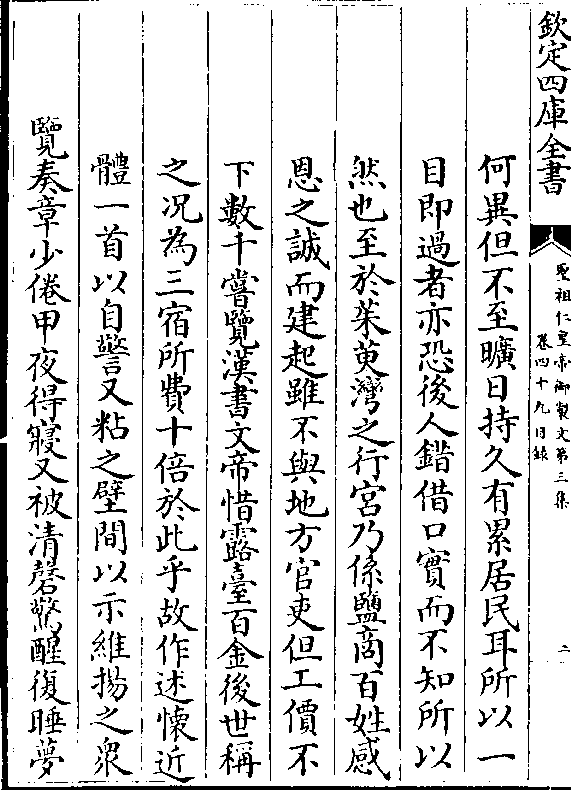 欽定四庫全書
聖祖仁皇帝御製文第三集
卷四十九目録
二
何異但不至曠日持久有累居民耳所以一
目即過者亦恐後人錯借口實而不知所以
然也至於茱萸灣之行宮乃係鹽商百姓感
恩之誠而建起雖不與地方官吏但工價不
下數千嘗覽漢書文帝惜露臺百金後世稱
之况為三宿所費十倍於此乎故作述懷近
體一首以自警又粘之壁間以示維揚之衆
覽奏章少倦甲夜得寢又被清磬驚醒復睡夢